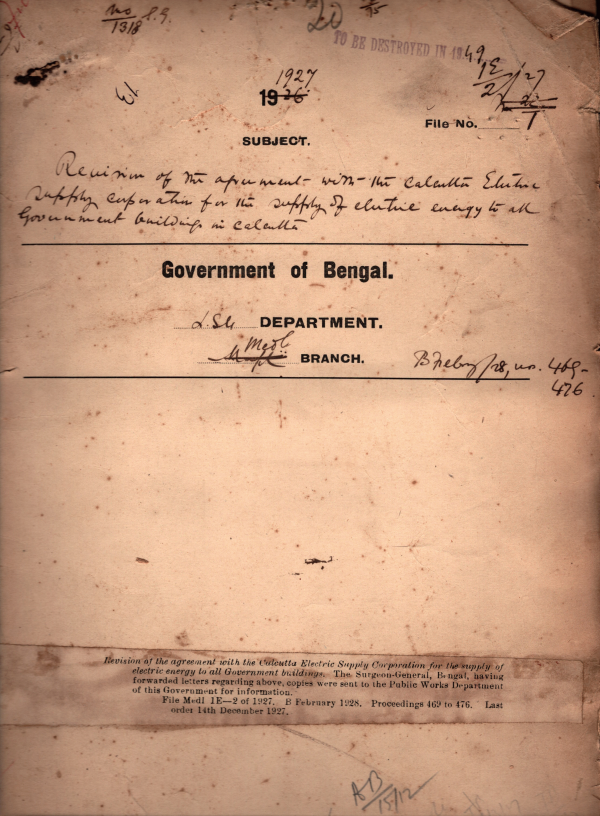 No
1318 S.G.
20
TO BE DESTROYED IN 1949
13
1927
1926
1E/2 27
File No. 1
SUBJECT.
Revision of the agreement with the Calcutta Electric
supply corporation for the supply of electric energy to all
Government buildings in Calcutta
Government of Bengal.
L.S.G. DEPARTMENT.
Medl
BRANCH.
B Feby/28, nos. 469-
476
Revision of the agreement with the Calcutta Electric Supply Corporation for the supply of
electric energy to all Government buildings. The Surgeon-General, Bengal, having
forwarded letters regarding above, copies were sent to the Public Works Department
of this Government for information.
File Medl 1E—2 of 1927. B February 1928. Proceedings 469 to 476. Last
order 14th December 1927.
AB
15/12